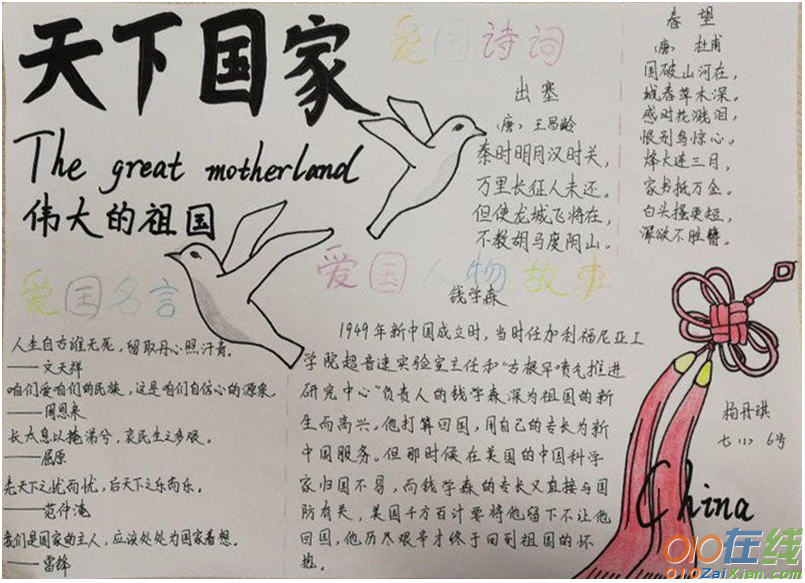 天下国家
The great motherland
伟大的祖国
爱国诗词
出塞
(唐) 王昌龄
秦时明月汉时关,
万里长征人未还。
但使龙城飞将在,
不教胡马度阴山。
春望
(唐) 杜甫
国破山河在,
城春草木深。
感时花溅泪,
恨别鸟惊心。
烽火连三月,
家书抵万金。
白头搔更短,
浑欲不胜簪。
爱国名言
人生自古谁无死,留取丹心照汗青。
——文天祥
咱们爱咱们的民族,这是咱们自信心的源泉
——周恩来
长太息以掩涕兮,哀民生之多艰。
——屈原
先天下之忧而忧,后天下之乐而乐。
——范仲淹
我们是国家的主人,应该处处为国家着想。
——雷锋
爱国人物故事
钱学森
1949年新中国成立时,当时任加利福尼亚工
学院超音速实验室主任和"古根罕喷气推进
研究中心"负责人的钱学森深为祖国的新
生而高兴。他打算回国,用自己的专长为新
中国服务。但那时候在美国的中国科学
家归国不易,而钱学森的专长又直接与国
防有关,美国千方百计要将他留下不让他
回国,他历尽艰辛才终于回到祖国的怀
抱。
杨丹琪
七(1) 6号
China
010在线
010ZaiXian.com